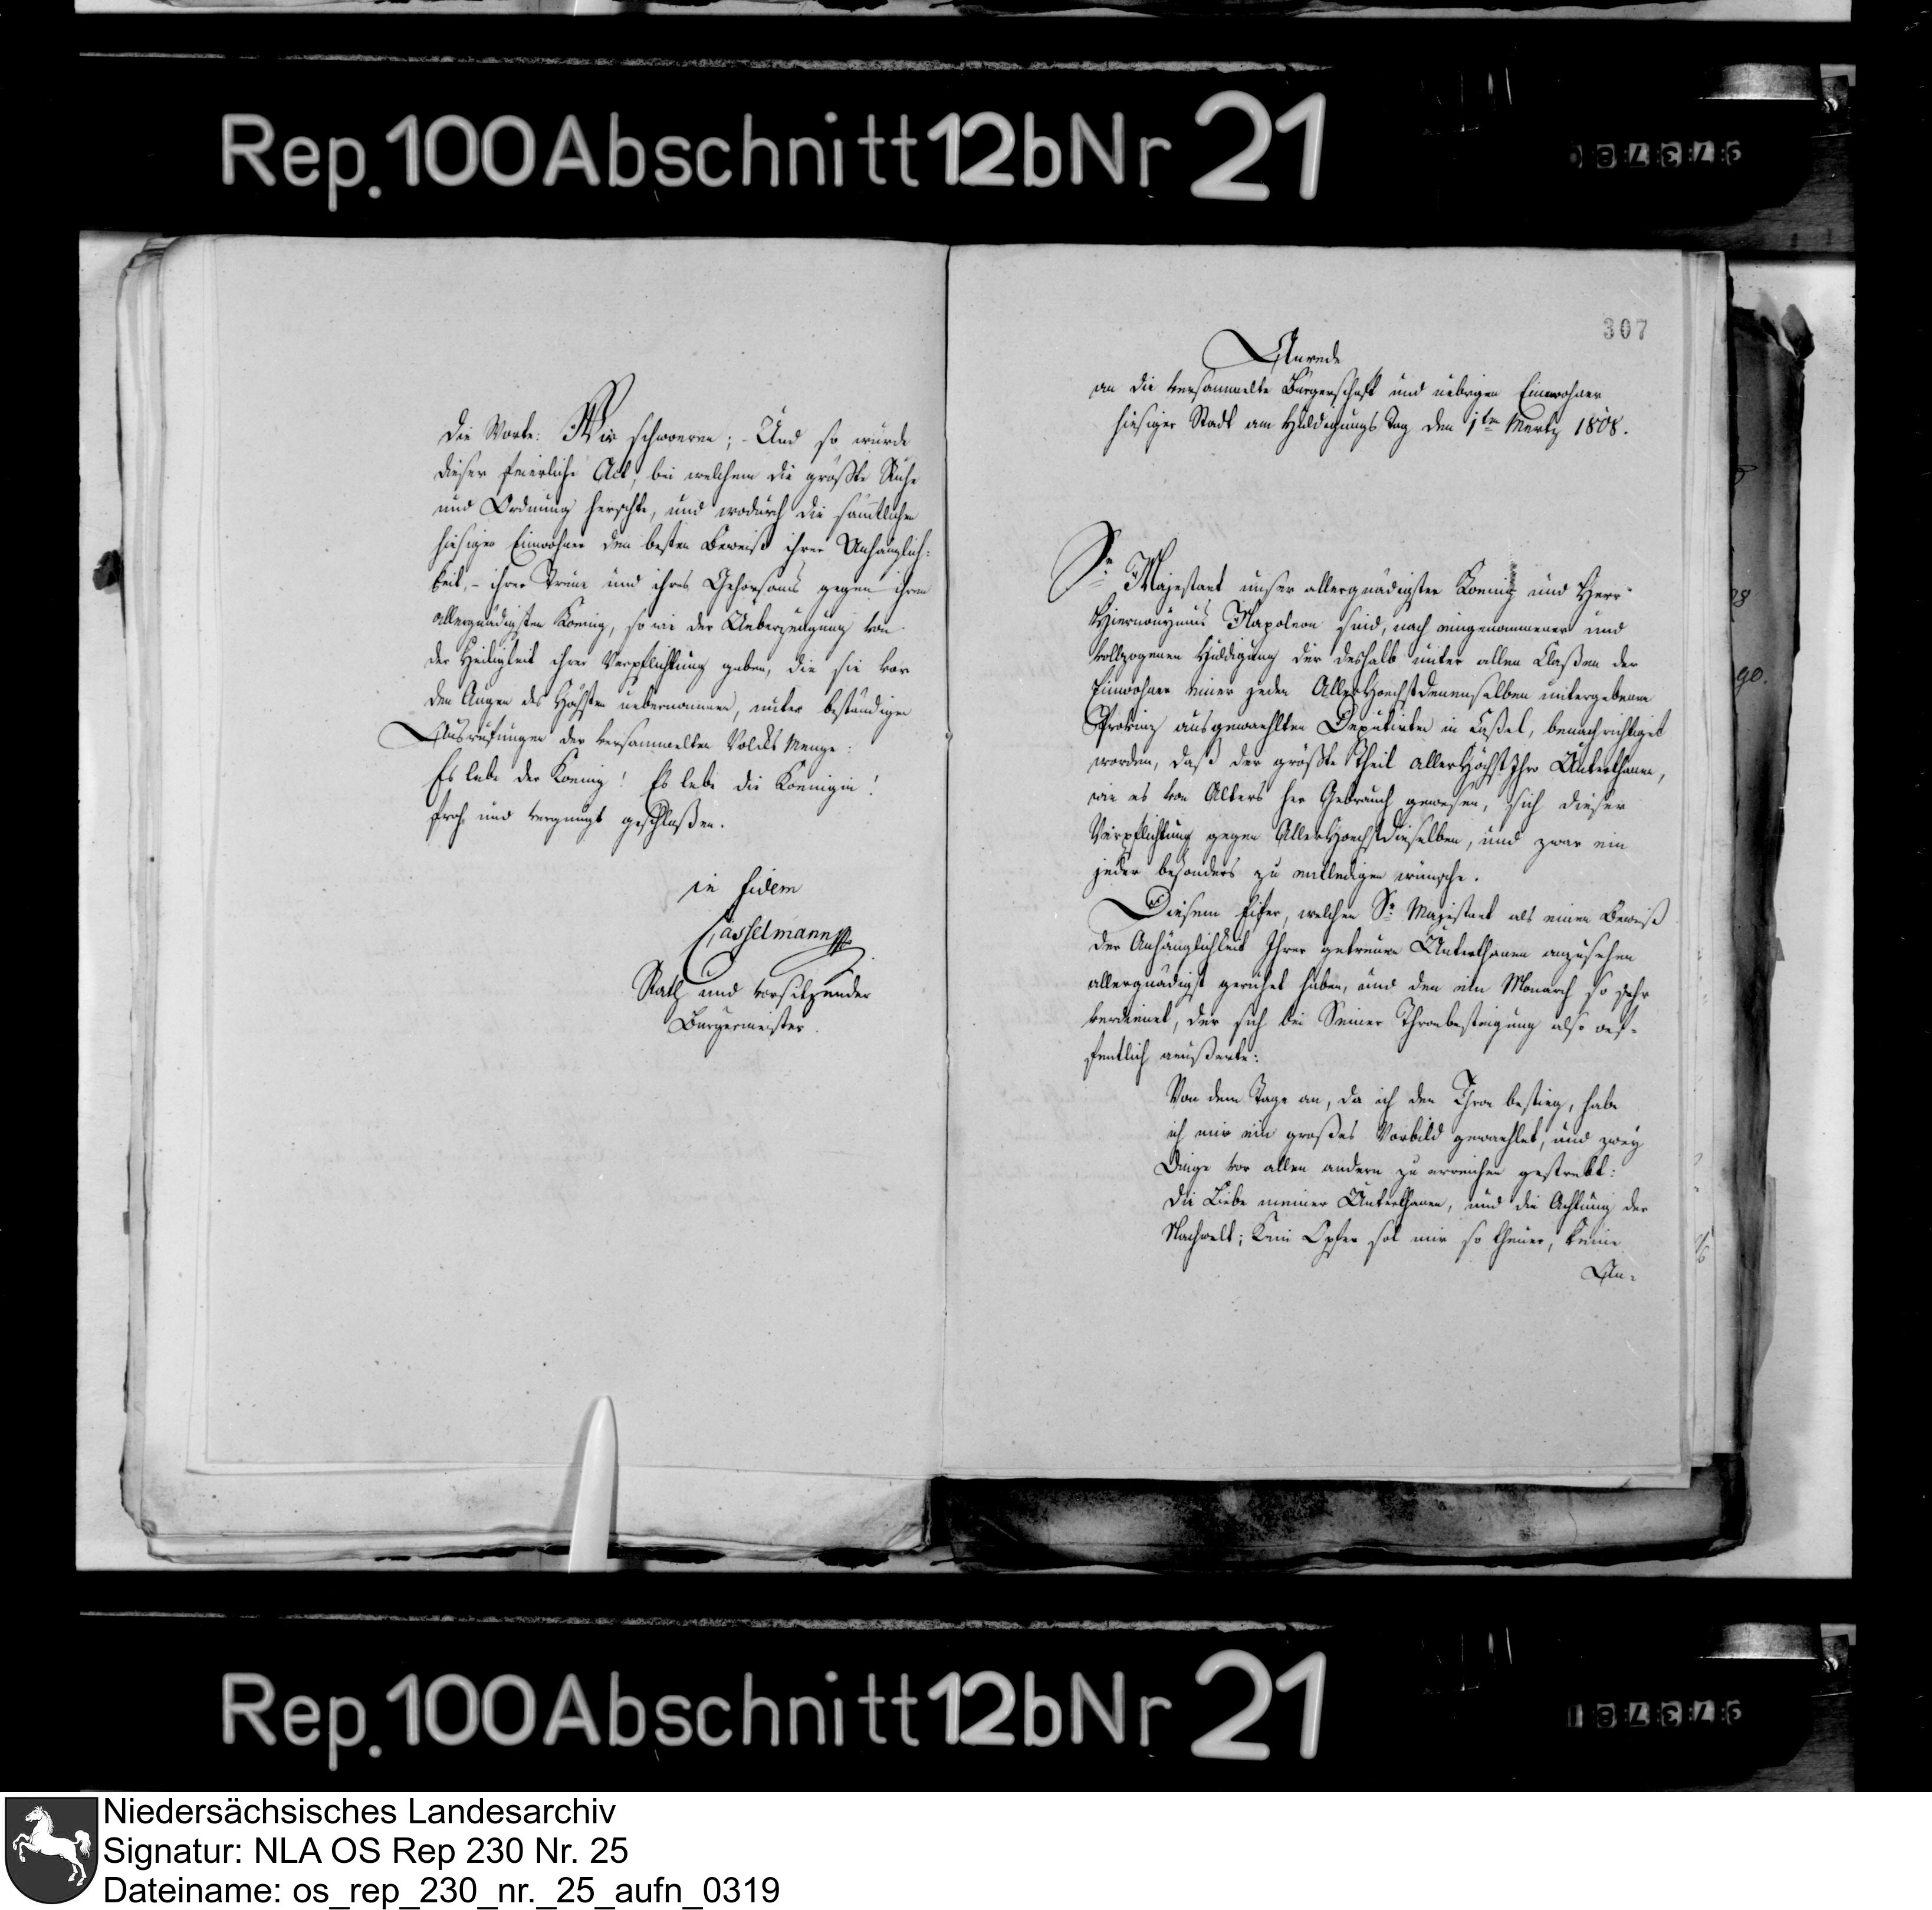 Rep. 100 Abschnitt 12b Nr 21
die Worte: Wir schwoeren; - Und so wurde
dieser feierliche Act, bei welchem die größte Ruhe
und Ordnung herschte, und wodurch die sämtlichen
hiesigen Einwohner den besten Beweiß ihrer Anhänglich-
keit, - ihrer Treue und ihres Gehorsams gegen ihren
allergnädigsten Koenig, so wie der Ueberzeugung von
der Heiligkeit ihrer Verpflichtung gaben, die sie vor
den Augen des Höchsten uebernommen, unter beständigen
Ausrufungen der versammelten Volcks Menge:
Es lebe der Koenig! Es lebe die Koenigin!
froh und vergnügt geschloßen.
in fidem
Casselmann
Rath und vorsitzender
Burgermeister.
307
Anrede
an die versammelte Bürgerschaft und uebrigen Einwohner
hiesiger Stadt am Huldigungs Tag den 1ten Mertz 1808.
Sr Majestaet unser allergnädigster Koenig und Herr
Hieronÿmus Napoleon sind, nach eingenommener und
vollzogenen Huldigung der deshalb unter allen Claßen der
Einwohner einer jeden AllerHoechstdenenselben untergebenen
Provinz ausgewaehlten Deputirten in Caßel, benachrichtiget
worden, daß der größte Theil allerHöchst Ihro Unterthanen,
wie es von Alters her Gebrauch gewesen, sich dieser
Verpflichtung gegen AllerHoechstdieselben, und zwar ein
jeder besonders zu entledigen wünsche.
Diesem Eifer, welchen Sr Majestaet als einen Beweiß
der Anhänglichkeit Ihrer getreuen Unterthanen anzusehen
allergnädigst geruhet haben, und den ein Monarch so sehr
verdienet, der sich bei Seiner Thronbesteigung also oef-
fentlich aeußerte:
Von dem Tage an, da ich den Thron bestieg, habe
ich mir ein großes Vorbild gewaehlet, und zweÿ
Dinge vor allen andern zu erreichen gestrebt:
die Liebe meiner Unterthanen, und die Achtung der
Nachwelt; Kein Opfer sol mir so theuer, keine
An-
Rep. 100 Abschnitt 12b Nr 21
Niedersächsisches Landesarchiv
Signatur: NLA OS Rep 230 Nr. 25
Dateiname: os_rep_230_nr._25_aufn_0319